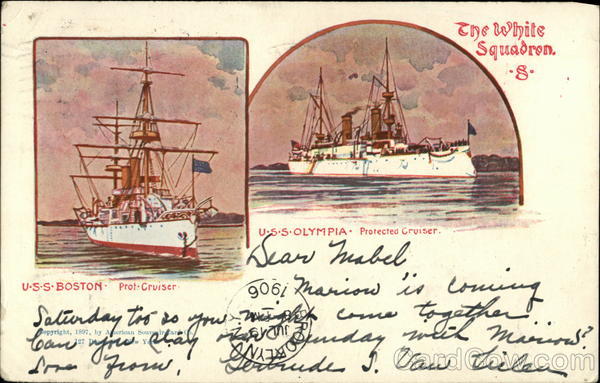 The White
Squadron.
·8·
U·S·S·OLYMPIA· Protected Cruiser.
U·S·S·BOSTON· Prot·Cruiser
Dear Mabel
Marion is coming
Saturday too so you might come together
Can you stay over Sunday with Marion?
Love from, Gertrude S. Van
Copyright, 1897, by American Souvenir-Card Co.
127
BROOKLYN
JUL 19
1906
CardCow.com